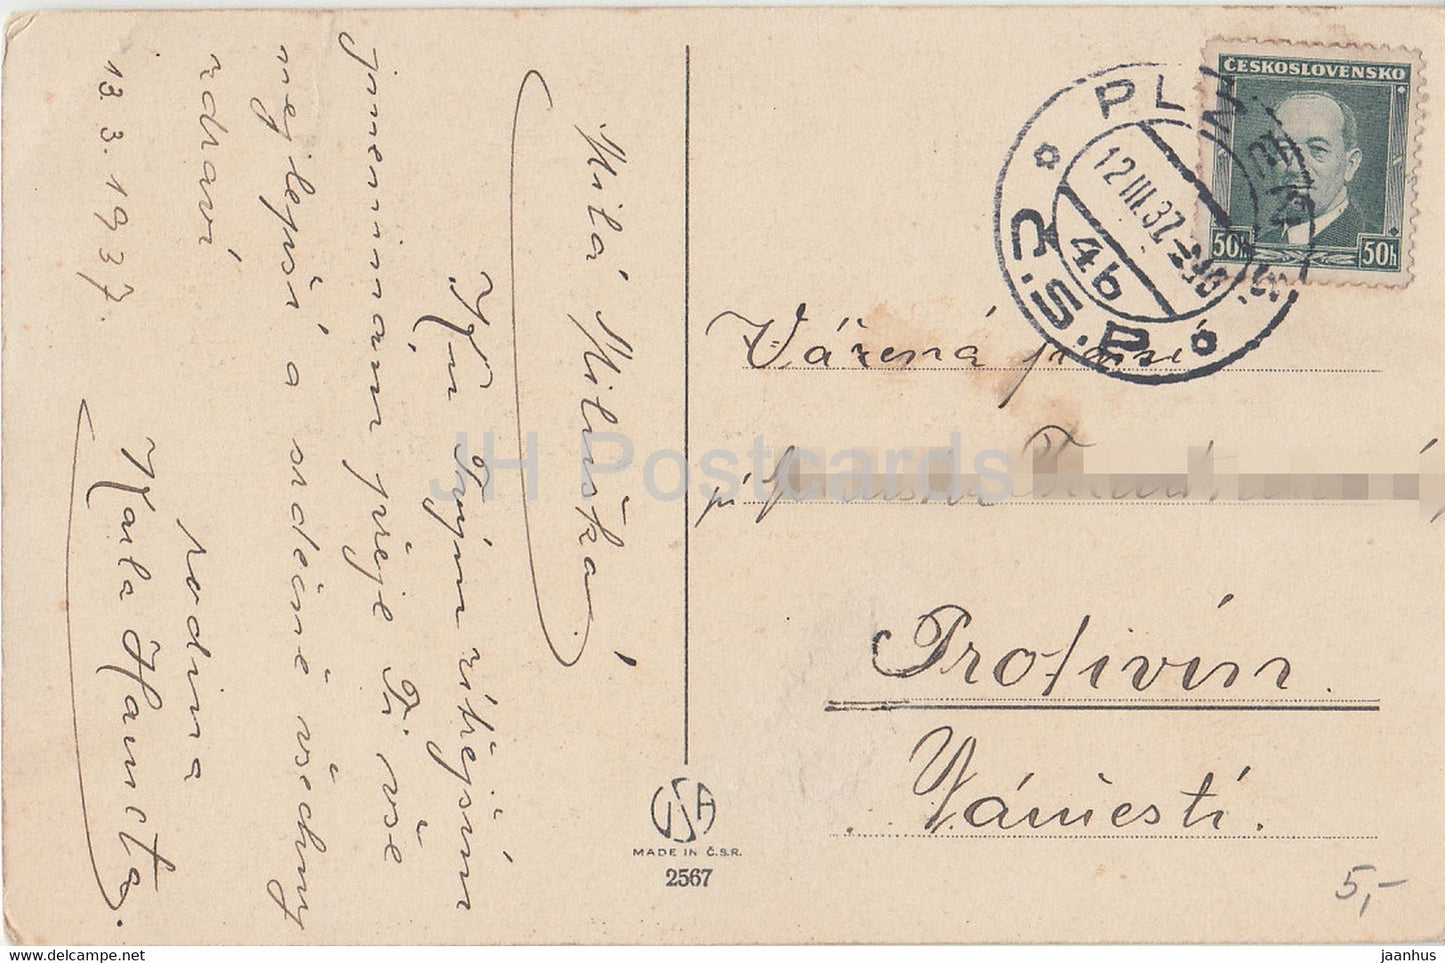 Milá Miluška.
Ku Tvým zítřejším
jmeninam přeje Ti vše
nejlepší a srdečně všechny
zdraví
rodina
Karla Hanzta.
13.3.1937.
ČESKOSLOVENSKO
50h 50h
PLZEŇ
12.III.37
4b
Vážená paní
Protivín.
Náměstí.
USA
MADE IN Č.S.R.
2567
5,-
JH Postcards
www.hipmarket.net
jaanhus